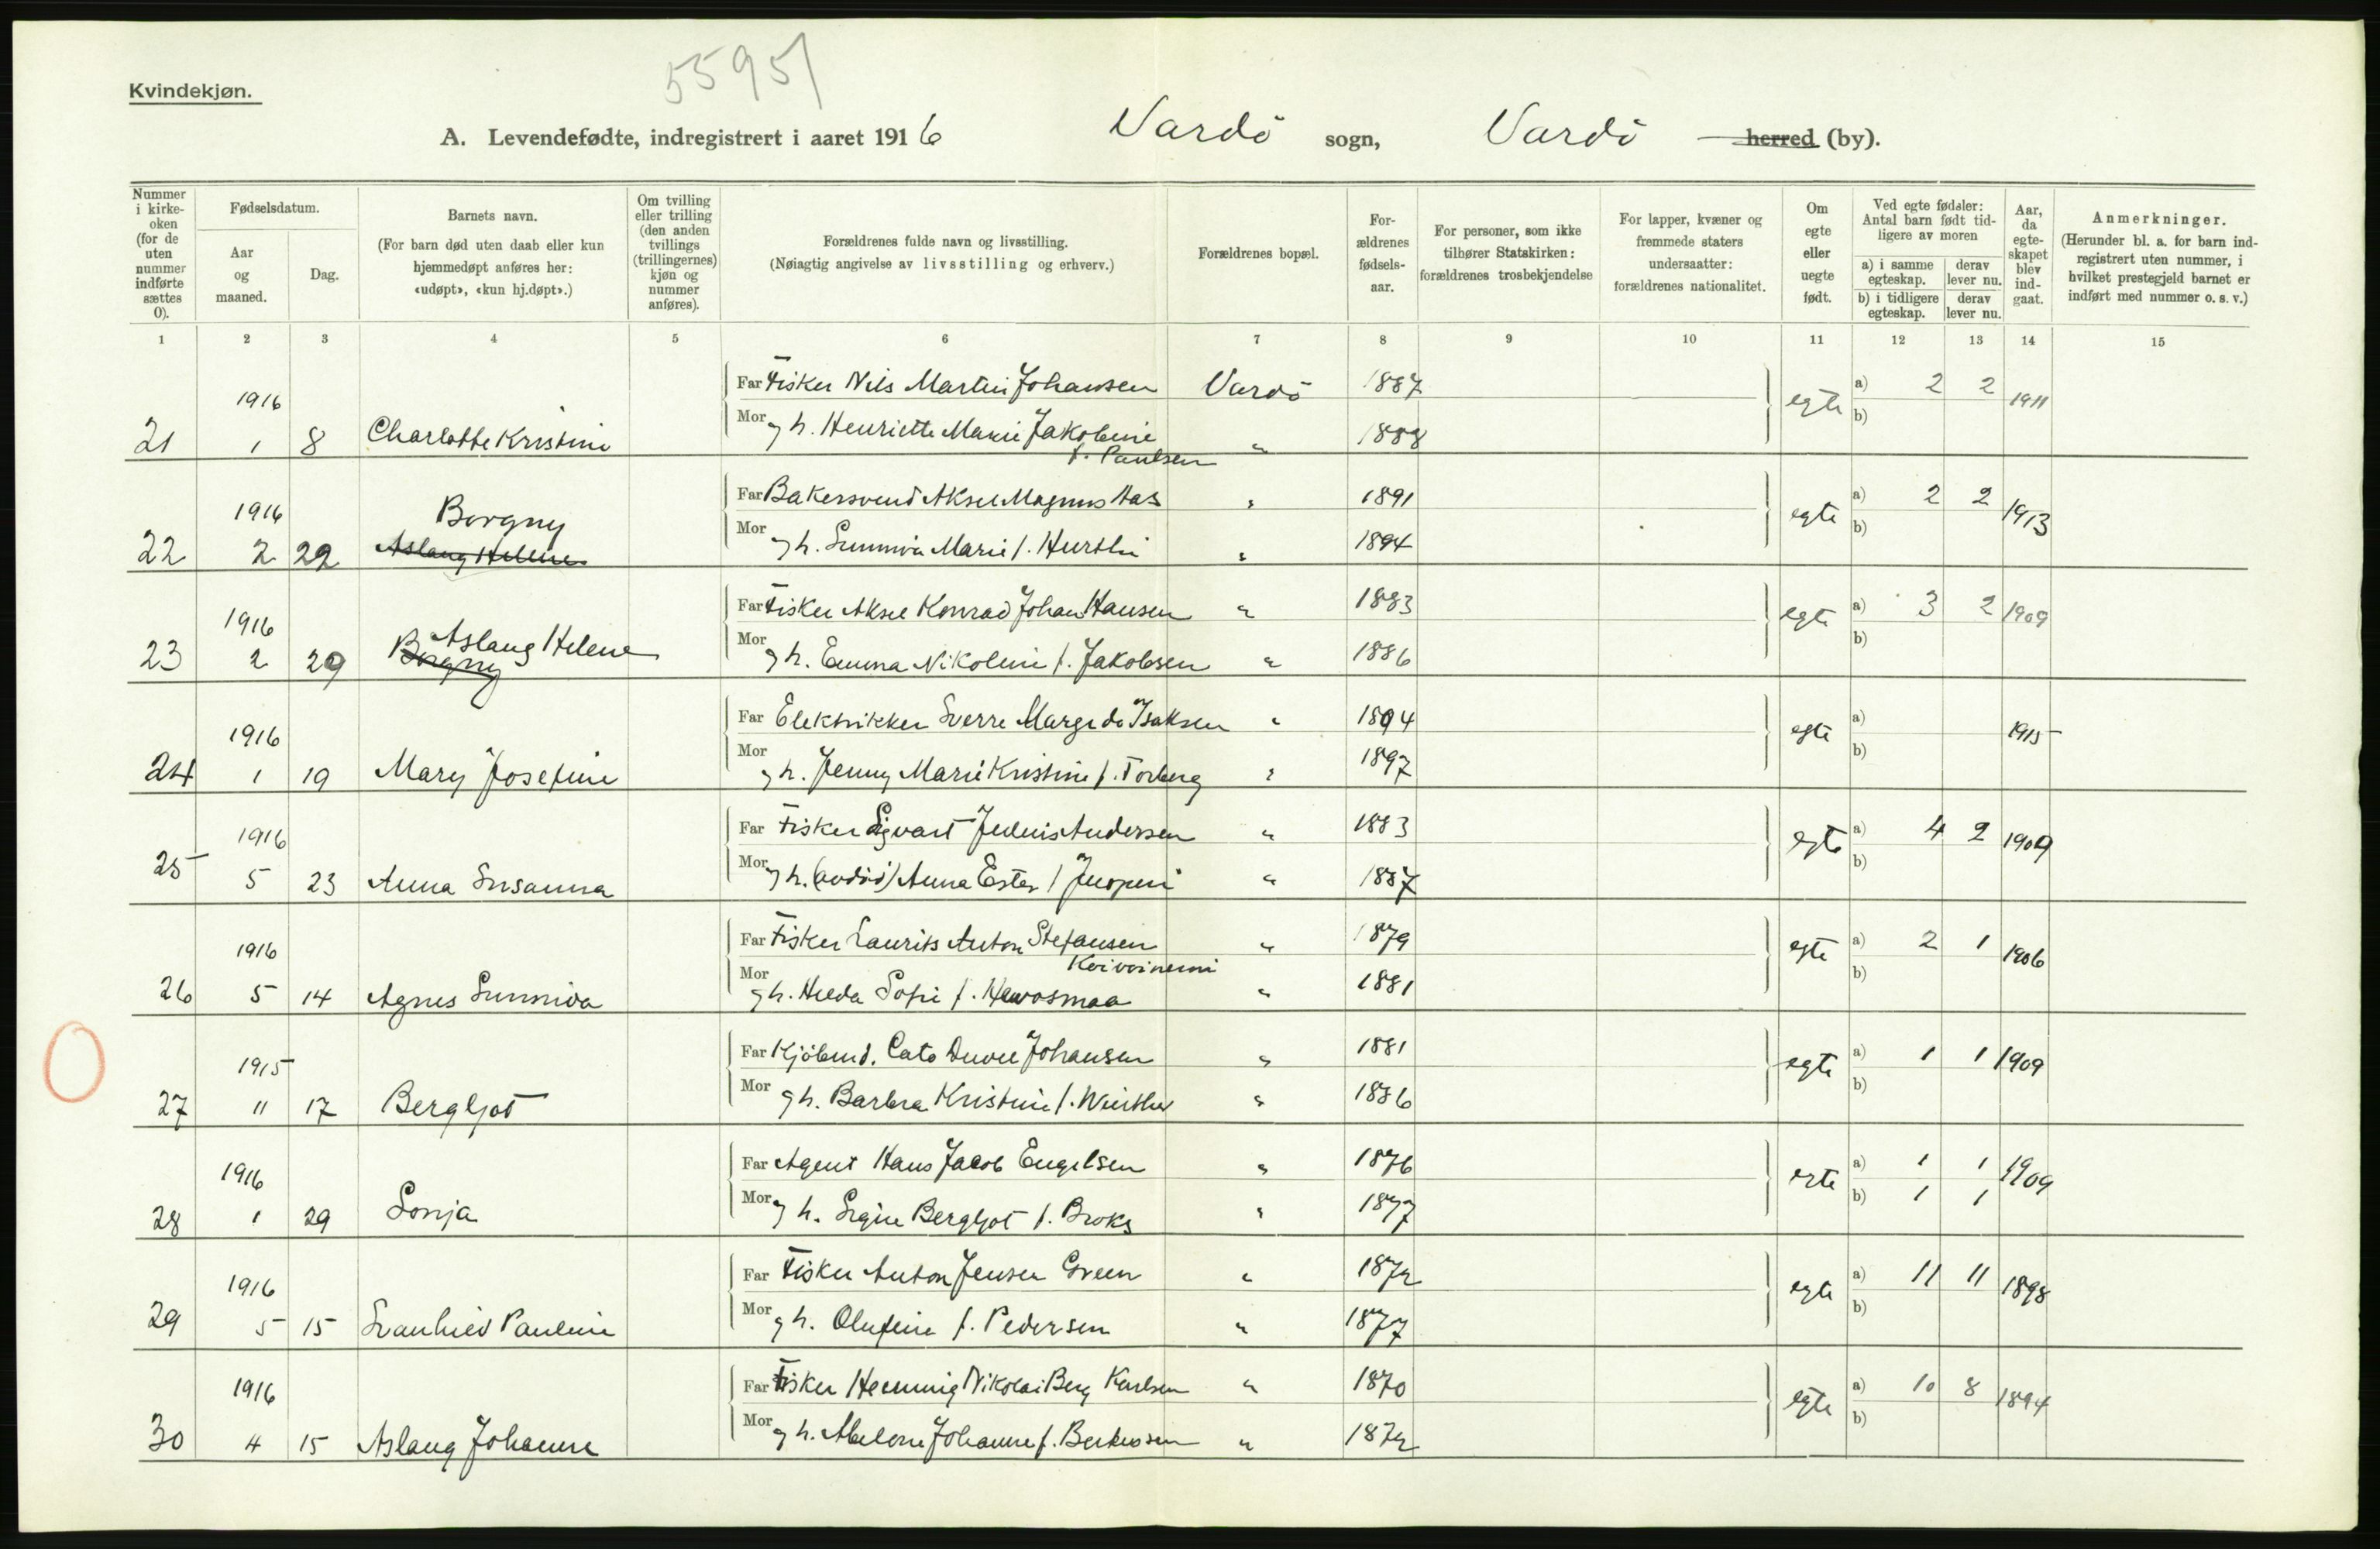 Kvindekjøn.
55951
A. Levendefødte, indregistrert i aaret 1916 Vardö sogn, Vardö herred (by).
Nummer i kirke- oken (for de uten nummer indførte sættes 0).
Fødselsdatum.
Aar og maaned.
Dag.
Barnets navn.
(For barn død uten daab eller kun hjemmedøpt anføres her: «udøpt», «kun hj.døpt».)
Om tvilling eller trilling (den anden tvillings (trillingernes) kjøn og nummer anføres).
Forældrenes fulde navn og livsstilling.
(Nøiagtig angivelse av livsstilling og erhverv.)
Forældrenes bopæl.
For- ældrenes fødsels- aar.
For personer, som ikke tilhører Statskirken: forældrenes trosbekjendelse
For lapper, kvæner og fremmede staters undersaatter: forældrenes nationalitet.
Om egte eller uegte født.
Ved egte fødsler: Antal barn født tid- ligere av moren
a) i samme egteskap.
derav lever nu.
b) i tidligere egteskap.
derav lever nu.
Aar, da egte- skapet blev ind- gaat.
Anmerkninger.
(Herunder bl. a. for barn ind- registrert uten nummer, i hvilket prestegjeld barnet er indført med nummer o. s. v.)
1 2 3 4 5 6 7 8 9 10 11 12 13 14 15
Far Fisker Nils Martin Johansen Vardö 1887 a) 2 2
1916 egte 1911
21 1 8 Charlotte Kristine Mor g h. Henriette Marie Jakobine " 1888 b)
f. Paulsen
Far Bakersvend Aksel Magnus Aas " 1891 a) 2 2
1916 Borgny egte 1913
22 2 22 Aslaug Helene Mor g h. Sunniva Marie f. " 1894 b)
Far Fisker Aksel Konrad Johan Hansen " 1883 a) 3 2 1909
1916 Aslaug Helene egte
23 2 29 Borgny Mor g h. Emma Nikoline f. Jakobsen " 1886 b)
Far Elektrikker Sverre Isaksen " 1894 a)
1916 egte 1915
24 1 19 Mary Josefine Mor g h. Jenny Marie Kristine f. Torberg " 1897 b)
Far Fisker Sigvart Andersen " 1883 a) 4 2 1909
1916 egte
25 5 23 Anna Susanna Mor g h. Anna Ester f. " 1887 b)
Far Fisker Laurits Anton Stefansen " 1879 a) 2 1
1916 Koivoinemi egte 1906
26 5 14 Agnes Sunniva Mor g h. Hilda Sofie f. " 1881 b)
Far Kjöbmd. Cato Johansen " 1881 a) 1 1 1909
1915 egte
27 11 17 Bergljot Mor g h. Barbra Kristine f. " 1886 b)
Far Agent Hans Jacob Engelsen " 1876 a) 1 1 1909
1916 egte
28 1 29 Sonja Mor g h. Signe Bergljot f. Broks " 1877 b) 1 1
Far Fisker Anton Jensen Green " 1872 a) 11 11 1898
1916 egte
29 5 15 Svanhild Pauline Mor g h. Olufine f. Pedersen " 1877 b)
Far Fisker Hemmig Nikolai Berg Karlsen " 1870 a) 10 8 1894
1916 egte
30 4 15 Aslaug Johanne Mor g h. Abelone Johanne f. " 1872 b)